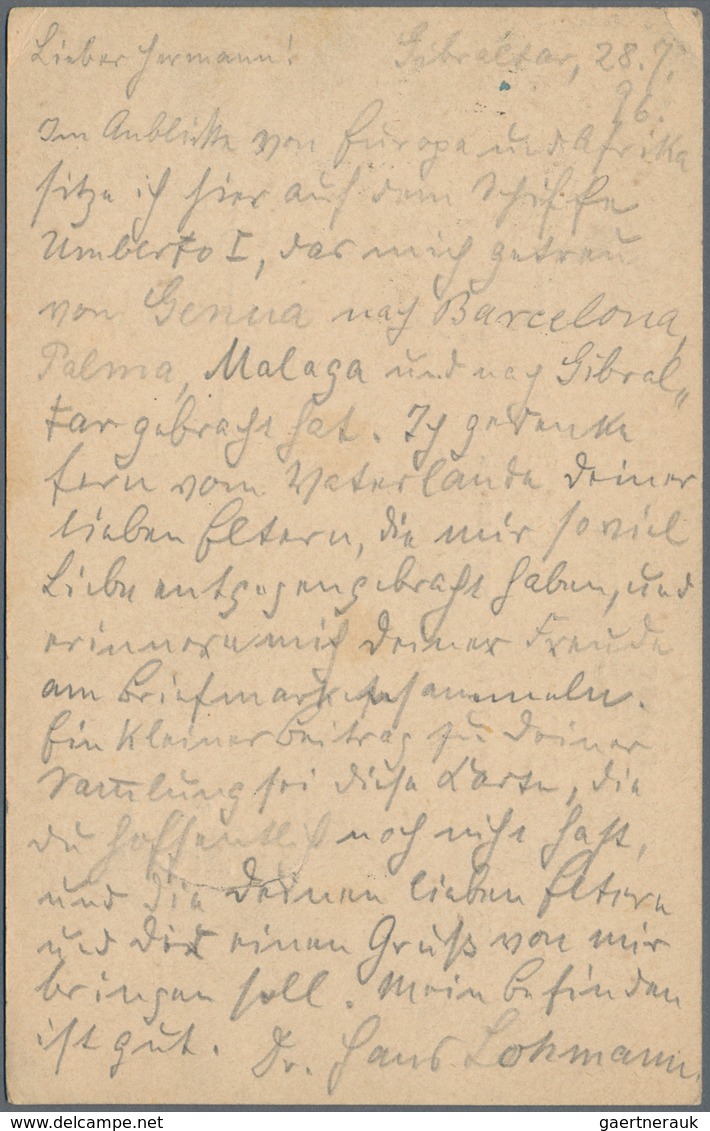 Lieber Hermann! Gibraltar, 28. 7.
96.
Im Anblicke von Europa und Afrika
sitze ich hier auf dem Schiffe
Umberto I, das mich getreu
von Genua nach Barcelona,
Palma, Malaga und nach Gibral„
tar gebracht hat. Ich gedenke
fern vom Vaterlande deiner
lieben Eltern, die mir so viel
Liebe entgegengebracht haben, und
erinnere mich deiner Freude
am Briefmarkensammeln.
Ein kleiner Beitrag zu deiner
Sam̅lung sei diese Karte, die
du hoffentlich noch nicht hast,
und die deinen lieben Eltern
und dir einen Gruß von mir
bringen soll. Mein Befinden
ist gut. Dr. Hans Lohmann.
gaertnerauk